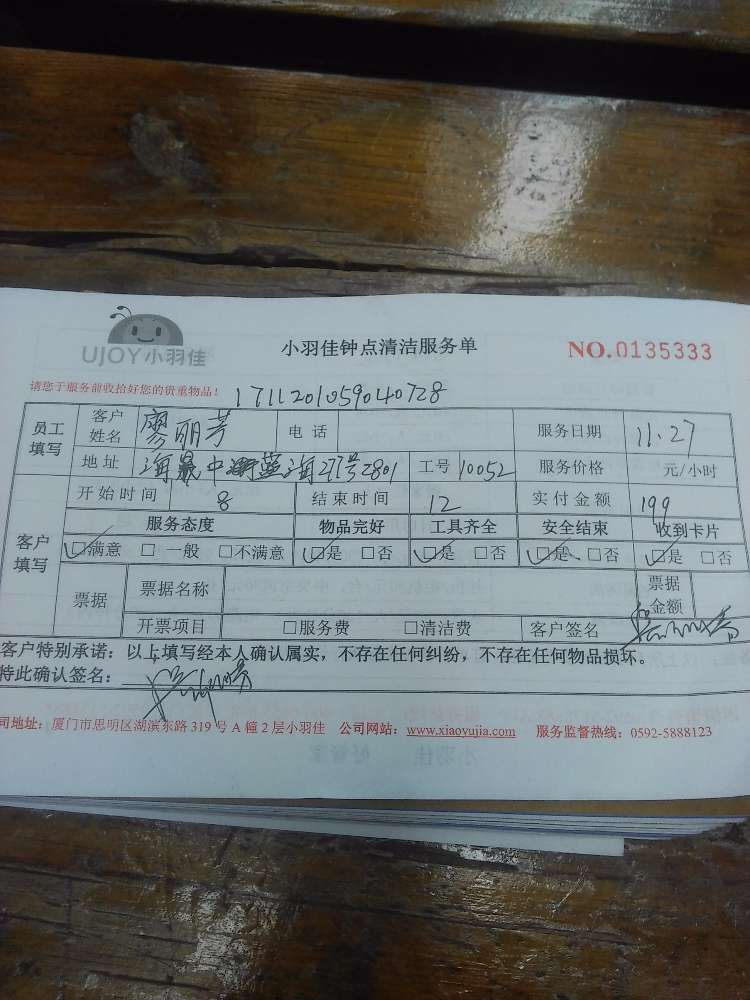 UJOY小羽佳
小羽佳钟点清洁服务单 NO.0135333
请您于服务前收拾好您的贵重物品! 1711201059040728
员工填写 客户姓名 廖丽芳 电话 服务日期 11.27
地址 海晟中 蓝海27号2801 工号 10052 服务价格 元/小时
客户填写 开始时间 8 结束时间 12 实付金额 199
服务态度 物品完好 工具齐全 安全结束 收到卡片
☑满意 □一般 □不满意 ☑是 □否 ☑是 □否 ☑是 □否 ☑是 □否
票据 票据名称 票据金额
开票项目 □服务费 □清洁费 客户签名
客户特别承诺：以上填写经本人确认属实，不存在任何纠纷，不存在任何物品损坏。
特此确认签名：
司地址：厦门市思明区湖滨东路 319 号 A 幢 2 层小羽佳 公司网站：www.xiaoyujia.com 服务监督热线：0592-5888123